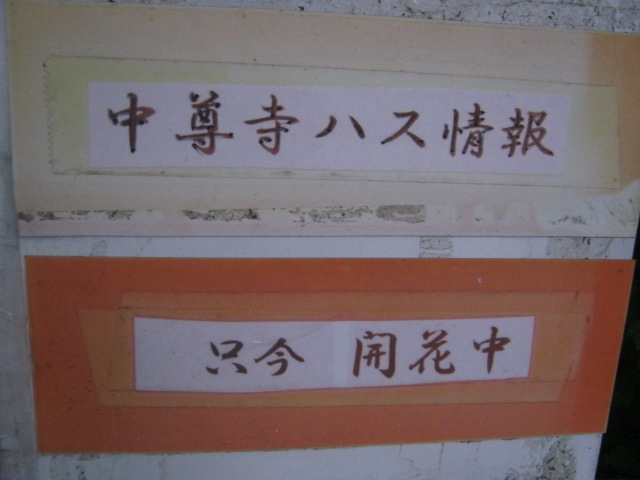 中尊寺ハス情報
只今 開花中